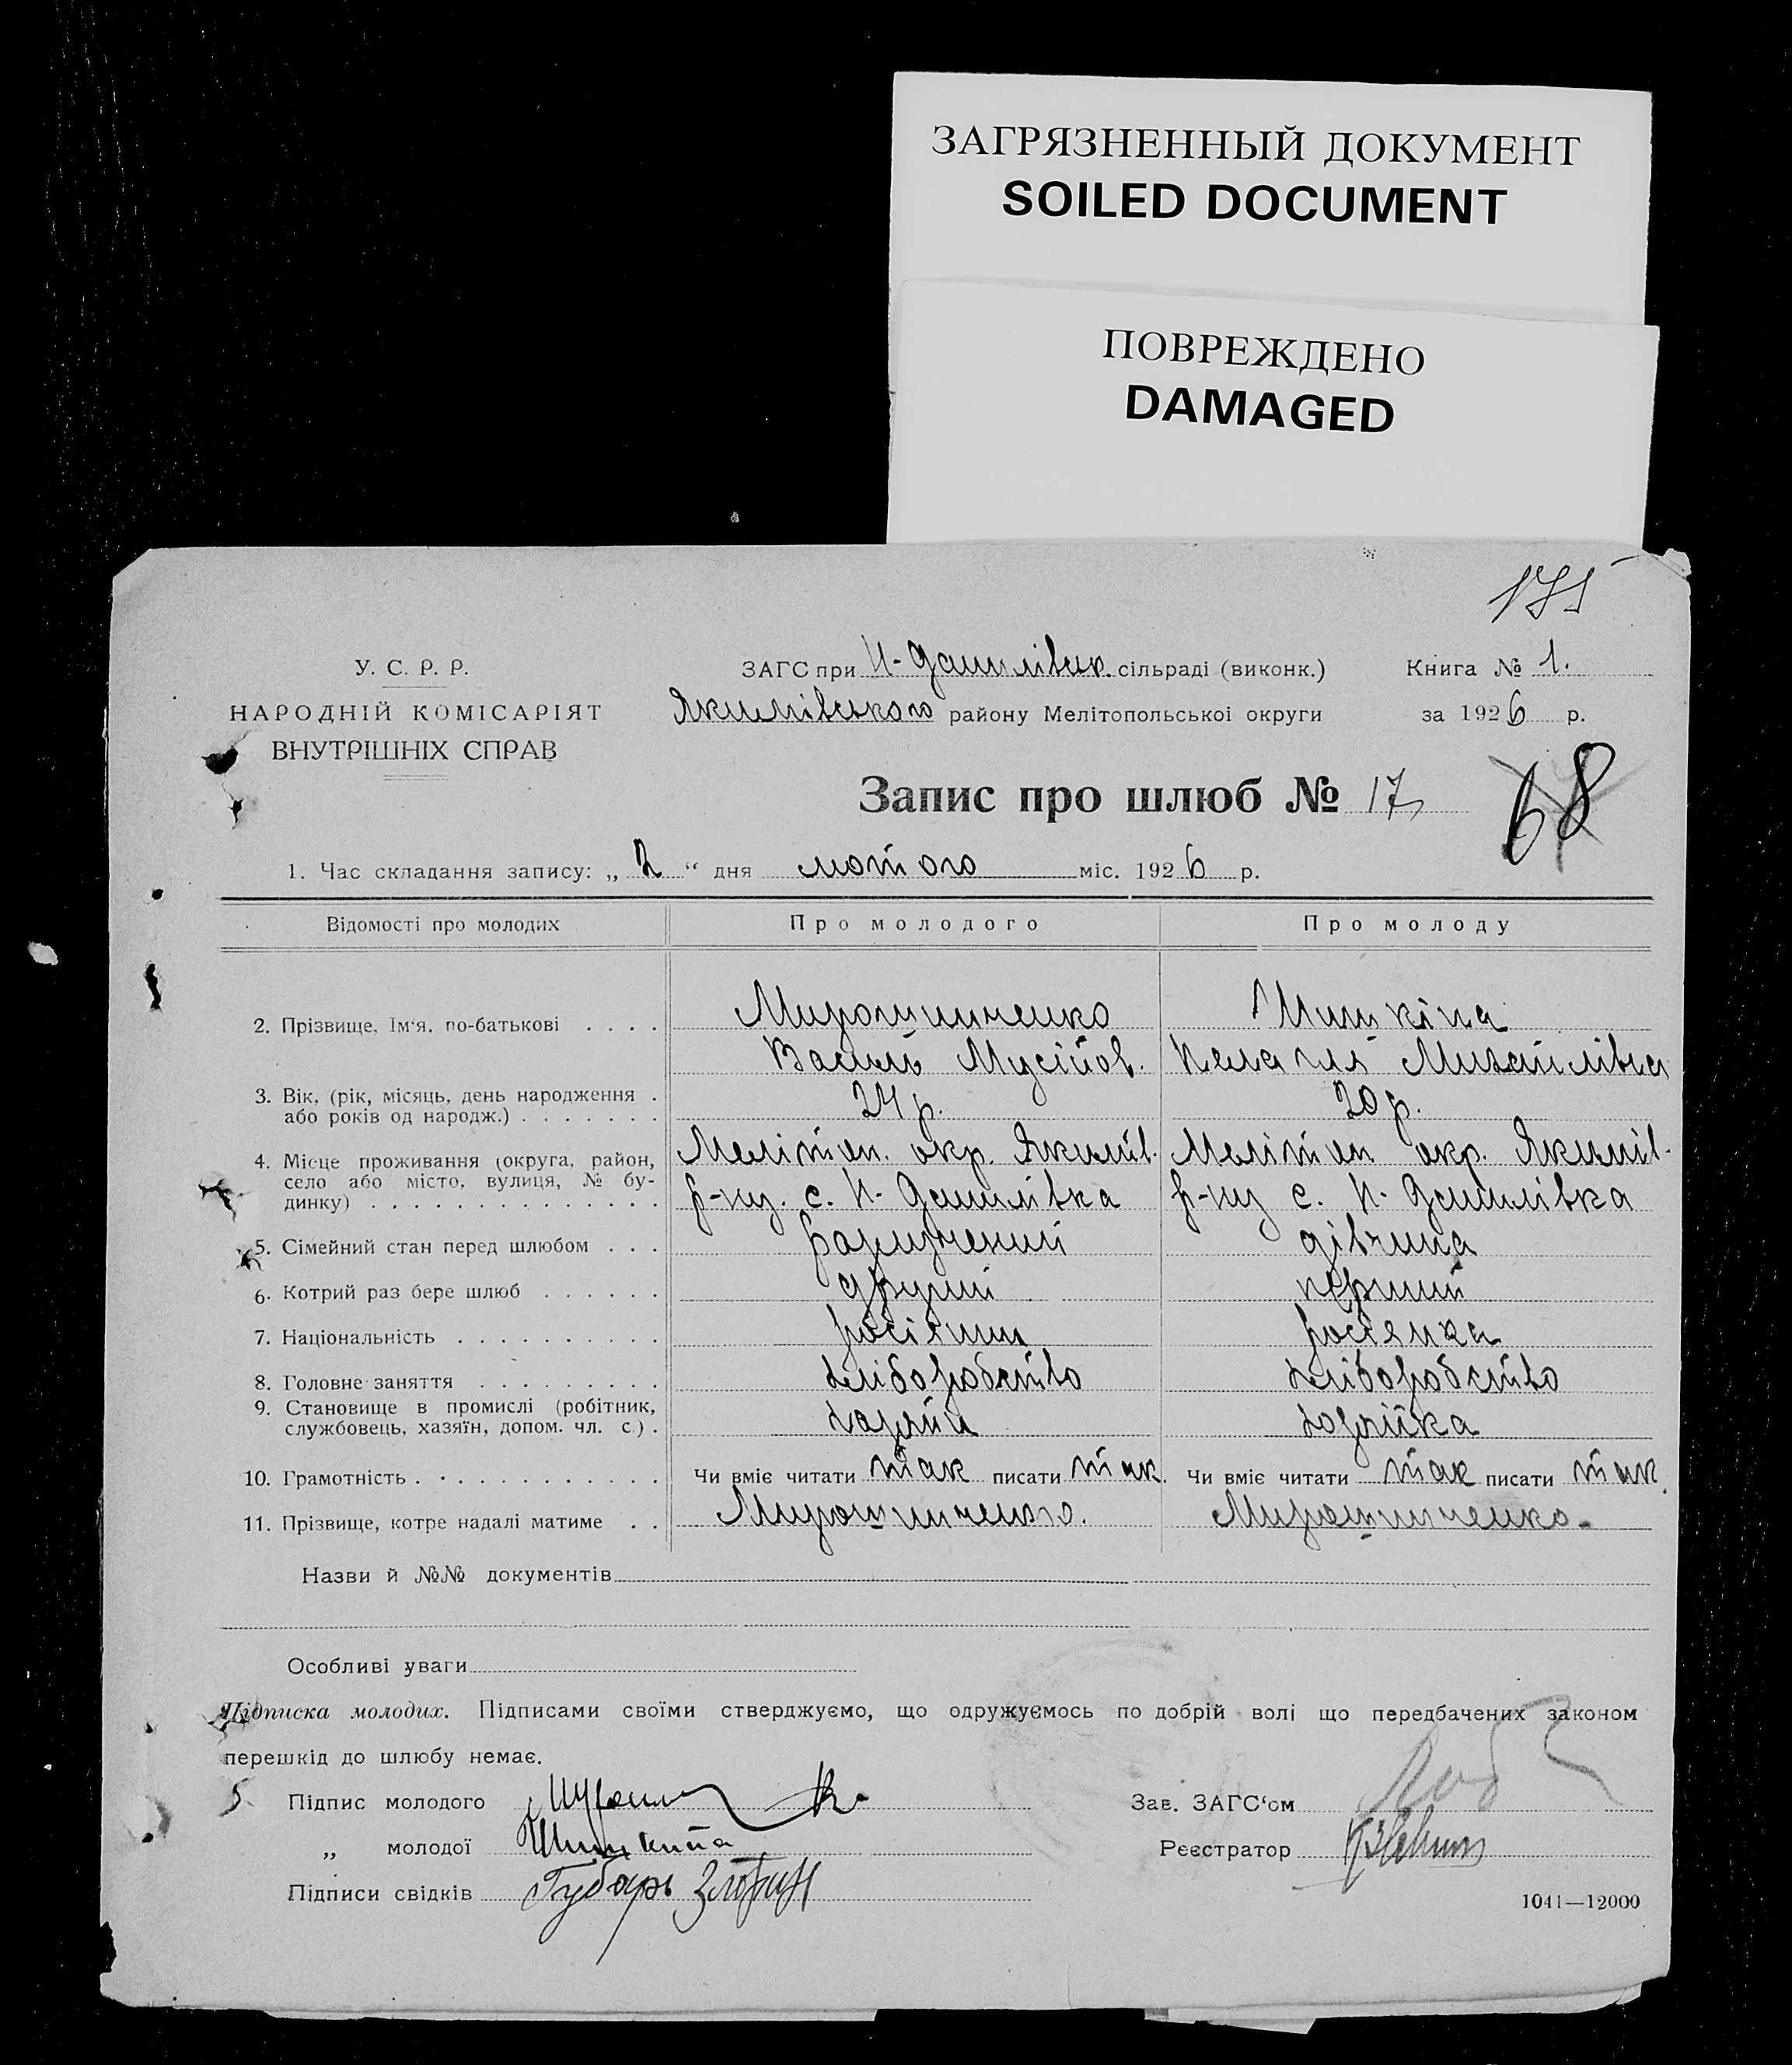 ЗАГРЯЗНЕННЫЙ ДОКУМЕНТ
SOILED DOCUMENT
ПОВРЕЖДЕНО
DAMAGED
175
У. С. Р. Р.
НАРОДНІЙ КОМІСАРІЯТ
ВНУТРІШНІХ СПРАВ
ЗАГС при Н-Данилівск. сільраді (виконк.)
Якимівського району Мелітопольської округи
Книга № 1.
за 1926 р.
Запис про шлюб № 17
68
1. Час складання запису: „ 2 “ дня лютого міс. 1926 р.
Відомості про молодих Про молодого Про молоду
2. Прізвище, Ім‘я, по-батькові . . . . Мирошниченко Шишкіна
Василь Мусійов. Пелагія Михайлівна
3. Вік, (рік, місяць, день народження . або років од народж.) . . . . . . . 24 р. 20 р.
4. Місце проживання (округа, район, Меліто п. окр. Якимів. Мелітоп окр. Якимів.
село або місто, вулиця, № бу- р-ну. с. Н- Данилівка р-ну с. Н- Данилівка
динку) . . . . . . . . . . . . . .
5. Сімейний стан перед шлюбом . . . розлучений дівчина
6. Котрий раз бере шлюб . . . . . . другий перший
7. Національність . . . . . . . . . . росіянин росіянка
8. Головне заняття . . . . . . . . . хліборобство хліборобство
9. Становище в промислі (робітник, службовець, хазяїн, допом. чл. с.) . хазяїн хазяйка
10. Грамотність . . . . . . . . . . . . Чи вміє читати так писати так. Чи вміє читати так писати так.
11. Прізвище, котре надалі матиме . . Мирошниченко. Мирошниченко.
Назви й №№ документів
Особливі уваги
Підписка молодих. Підписами своїми стверджуємо, що одружуємось по добрій волі що передбачених законом
перешкід до шлюбу немає.
Підпис молодого
Зав. ЗАГС‘ом
„ молодої Шишкина
Реєстратор
Підписи свідків Губарь
1041—12000